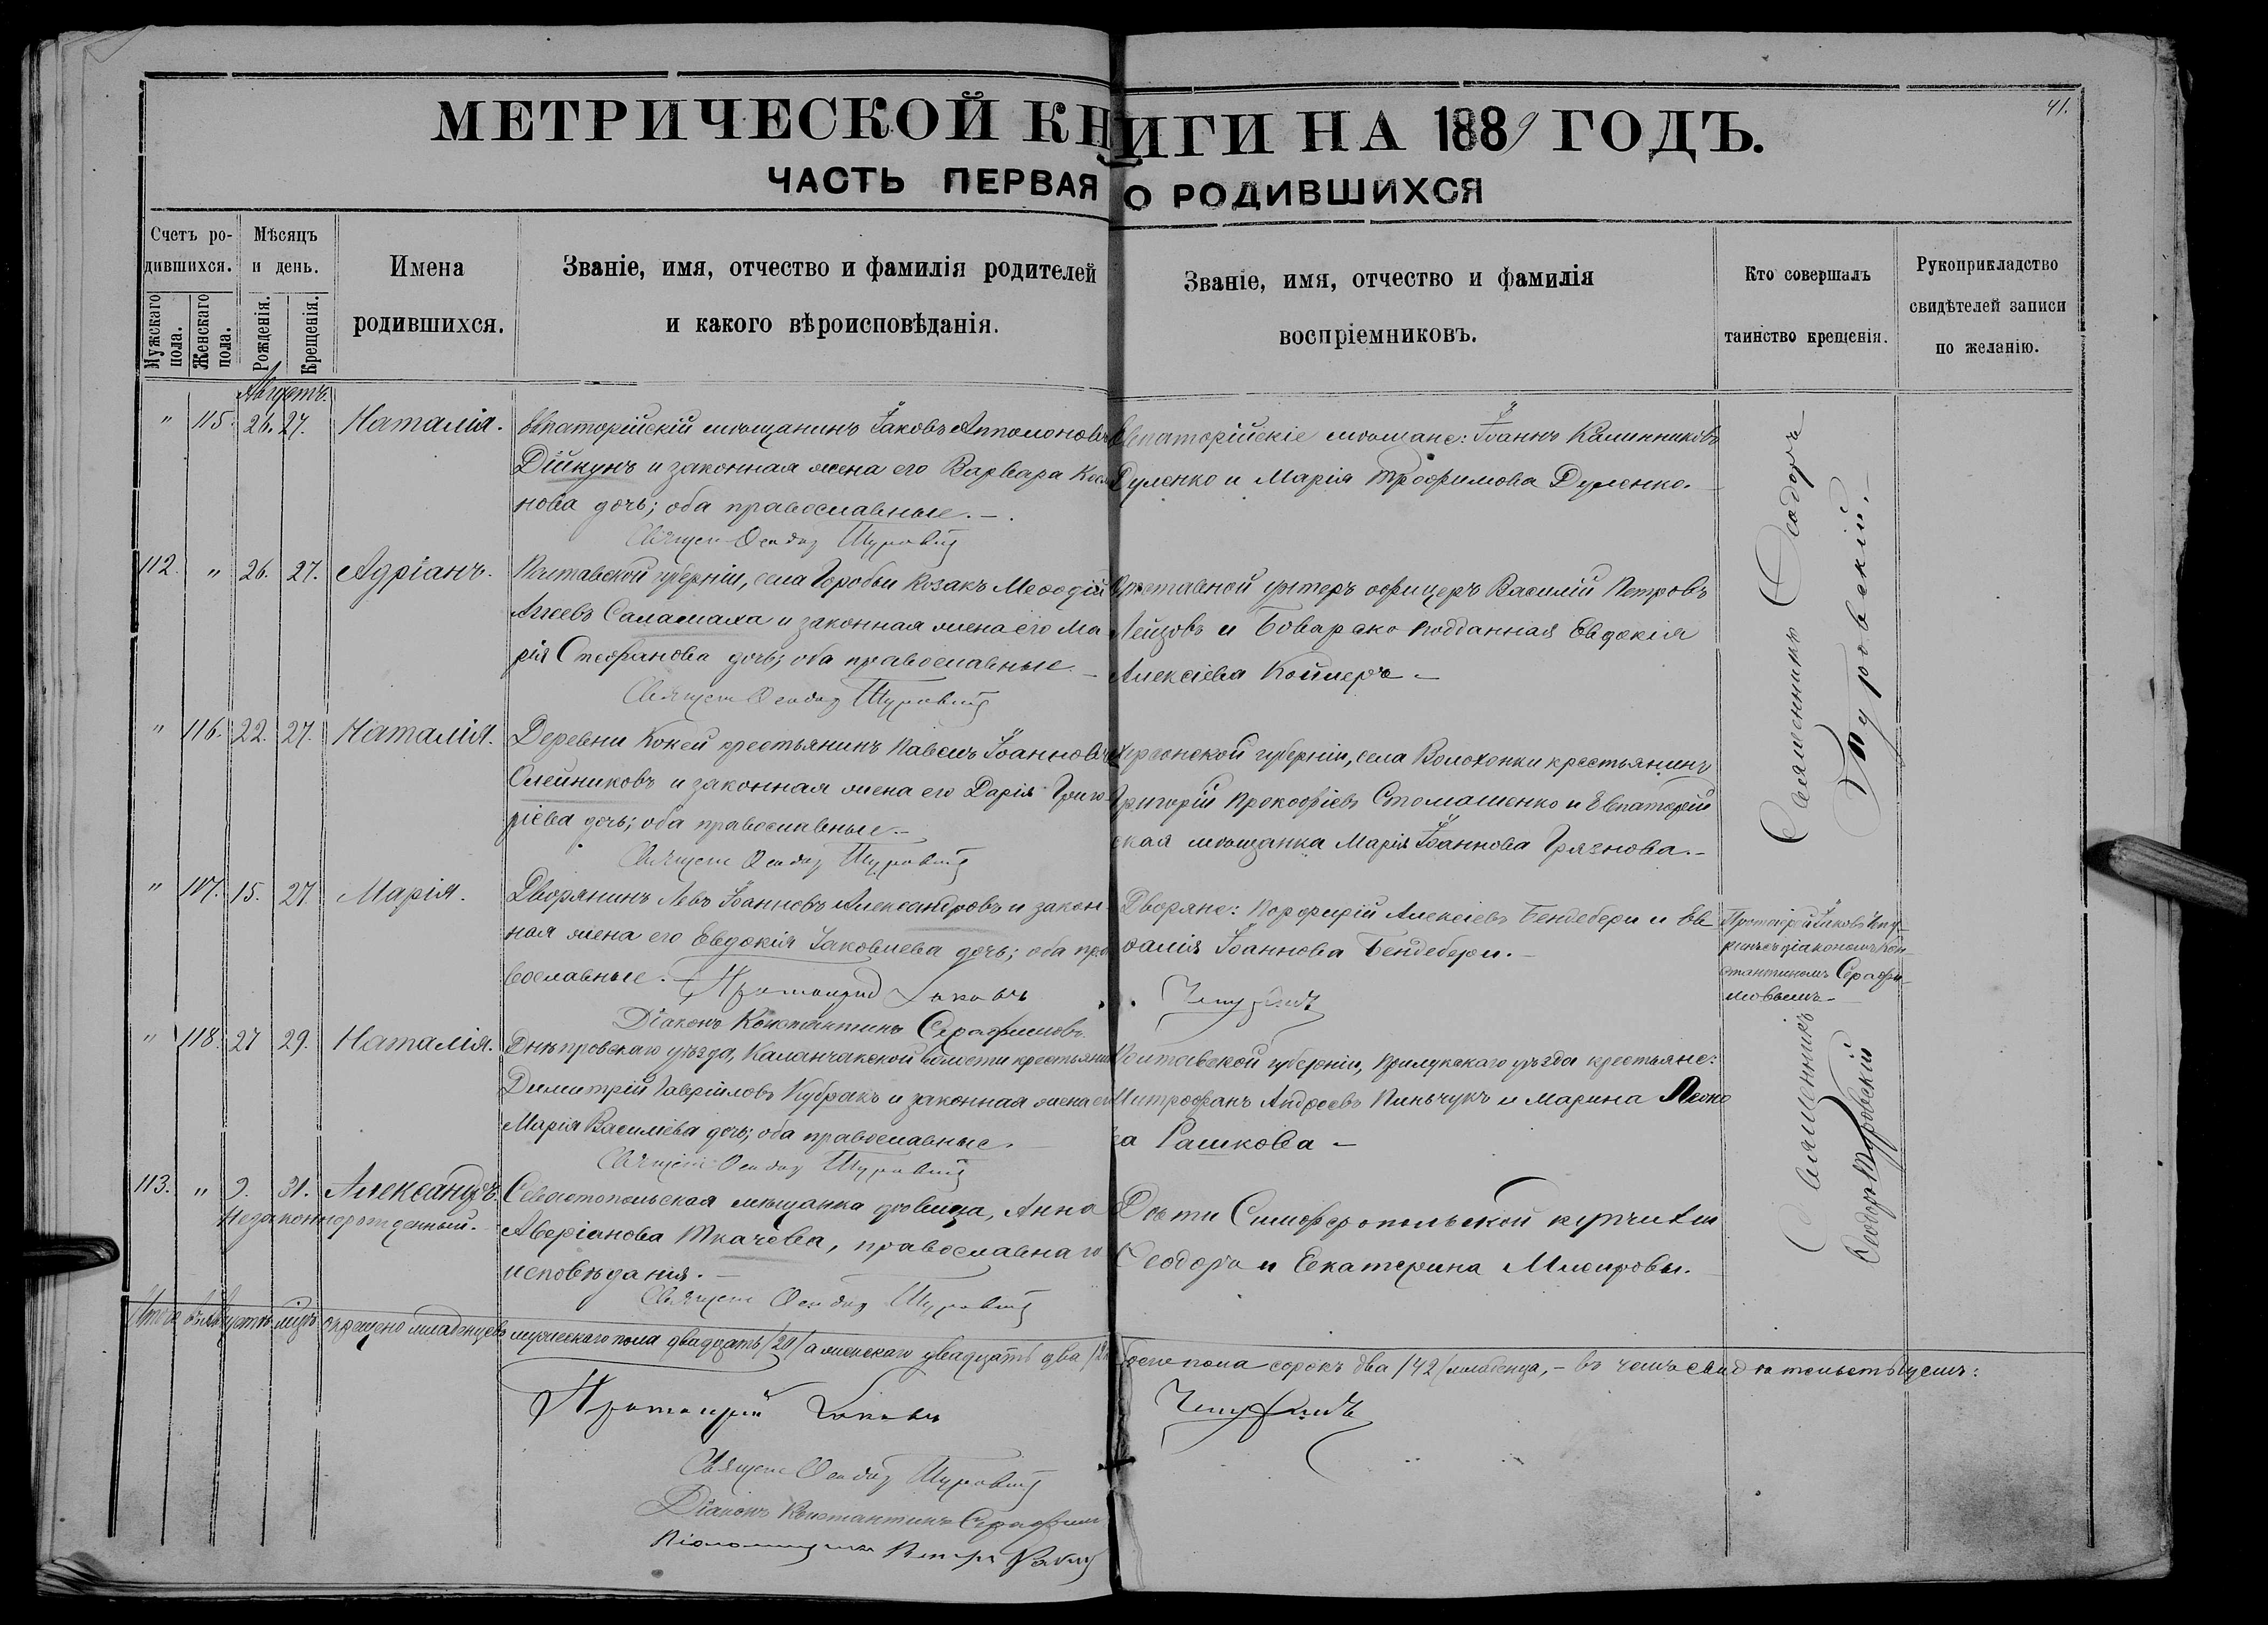 41.
МЕТРИЧЕСКОЙ КНИГИ НА 1889 ГОДЪ.
ЧАСТЬ ПЕРВАЯ О РОДИВШИХСЯ
Счетъ ро-
дившихся.
Мужскаго пола.
Женскаго пола.
Мѣсяцъ
и день.
Рожденія.
Крещенія.
Имена
родившихся.
Званіе, имя, отчество и фамилія родителей
и какого вѣроисповѣданія.
Званіе, имя, отчество и фамилія
воспріемниковъ.
Кто совершалъ
таинство крещенія.
Рукоприкладство
свидѣтелей записи
по желанію.
Августъ.
" 115. 26. 27. Наталія.
Евпаторійскій мѣщанинъ Іаковъ
Дійкунъ и законная жена его Варвара
нова дочь; оба православные.—
Священ Ѳеодоръ Туровскій
Евпаторійскіе мѣщане: Іоаннъ Калинниковъ
Дуленко и Марія Трофимова Дуленко.
112. " 26. 27. Адріанъ.
Полтавской губерніи, села Горобьи козакъ Меѳодій
Аггеевъ Саламаха и законная жена его Ма
рія Стефанова дочь; оба православные.—
Священ Ѳеодоръ Туровскій
Отставной унтеръ офицеръ Василій Петровъ
и Баварско подданная Евдокія
Алексіева
" 116. 22. 27. Наталія.
Деревни крестьянинъ Павелъ Іоанновъ
Олейниковъ и законная жена его Дарія Григо-
ріева дочь; оба православные.—
Священ Ѳеодоръ Туровскій
Херсонской губерніи, села Волохонки крестьянинъ
Григорій Прокофіевъ Стомашенко и Евпаторій
ская мѣщанка Марія Іоаннова Грязнова.—
Священникъ Ѳеодоръ
Туровскій.—
" 117. 15. 27. Марія.
Дворянинъ Левъ Іоанновъ Александровъ и закон-
ная жена его Евдокія Іаковлева дочь; оба пра
вославные.— Протоіерей Іаковъ
Діаконъ Константинъ Серафимовъ
Дворяне: Порфирій Алексіевъ Бендебери и Ев
ѳалія Іоаннова Бендебери.—
Чепуринъ
Протоіерей Іаковъ Чепу-
ринъ съ діакономъ Кон-
стантиномъ Серафи-
мовымъ.—
" 118. 27 29. Наталія.
Днѣпровскаго уѣзда, Каланчакской волости крестьянинъ
Димитрій Гавріиловъ Кубракъ и законная жена его
Марія Василіева дочь; оба православные.
Священ Ѳеодоръ Туровскій
Полтавской губерніи, Прилукскаго уѣзда крестьяне:
Митрофанъ Андреевъ Пиньчукъ и Марина
Рашкова —
113. " 9. 31. Александръ.
Незаконнорожденный.—
Севастопольская мѣщанка дѣвица, Анна
Аверіанова Ткачева, православнаго
исповѣданія.—
Священ Ѳеодоръ Туровскій
Дѣти Симферопольской купчихи
Ѳеодоръ и Екатерина
Священникъ
Ѳеодоръ Туровскій
Итого въ Августѣ мцѣ крещено младенцевъ мужескаго пола двадцать /20/ а женскаго двадцать два обоего пола сорокъ два /42/ младенца,— въ чемъ свидѣтельствуемъ:
Протоіерей Іаковъ Чепуринъ
Священ Ѳеодоръ Туровскій
Діаконъ Константинъ Серафимовъ
Псаломщикъ